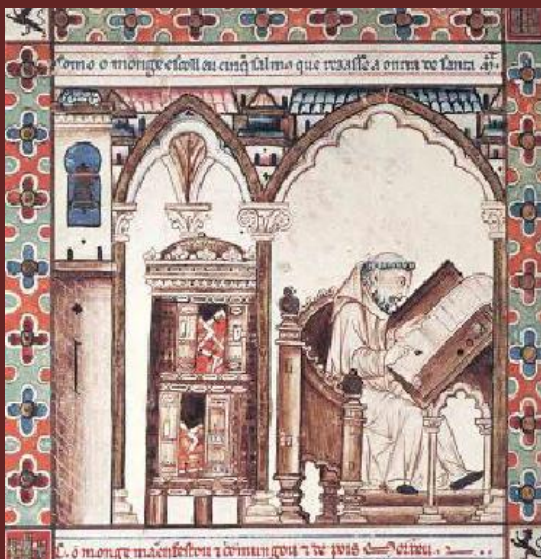 Como o monge escolleu cinq̄ salmos que rezasse a onrra de santa m̄.
C. o monge mãenfestou ⁊ comungou ⁊ de pois